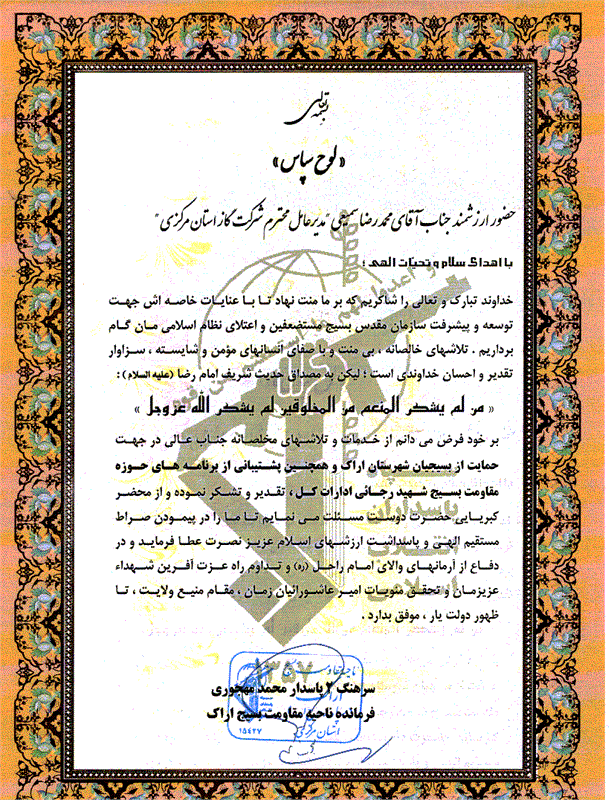 بسمه تعالی
«لوح سپاس»
حضور ارزشمند جناب آقای محمد رضا سمیعی "مدیر عامل محترم شرکت گاز استان مرکزی"
با اهدای سلام و تحیات الهی ؛
خداوند تبارک و تعالی را شاکریم که بر ما منت نهاد تا با عنایات خاصه اش جهت
توسعه و پیشرفت سازمان مقدس بسیج مستضعفین و اعتلای نظام اسلامی مان گام
برداریم . تلاشهای خالصانه ، بی منت و با صفای انسانهای مؤمن و شایسته ، سزاوار
تقدیر و احسان خداوندی است ؛ لیکن به مصداق حدیث شریف امام رضا (علیه السلام) :
« من لم یشکر المنعم من المخلوقین لم یشکر الله عزوجل »
بر خود فرض می دانم از خدمات و تلاشهای مخلصانه جناب عالی در جهت
حمایت از بسیجیان شهرستان اراک و همچنین پشتیبانی از برنامه های حوزه
مقاومت بسیج شهید رجائی ادارات کل ، تقدیر و تشکر نموده و از محضر
کبریایی حضرت دوست مسئلت می نمایم تا ما را در پیمودن صراط
مستقیم الهی و پاسداشت ارزشهای اسلام عزیز نصرت عطا فرماید و در
دفاع از آرمانهای والای امام راحل (ره) و تداوم راه عزت آفرین شهداء
عزیزمان و تحقق منویات امیر عاشورائیان زمان ، مقام منیع ولایت ، تا
ظهور دولت یار ، موفق بدارد .
۱۳۵۷
سرهنگ ۲ پاسدار محمد مهجوری
فرمانده ناحیه مقاومت بسیج اراک
استان مرکزی
۱۵۴۲۷
سپاه
پاسداران
انقلاب
اسلامی